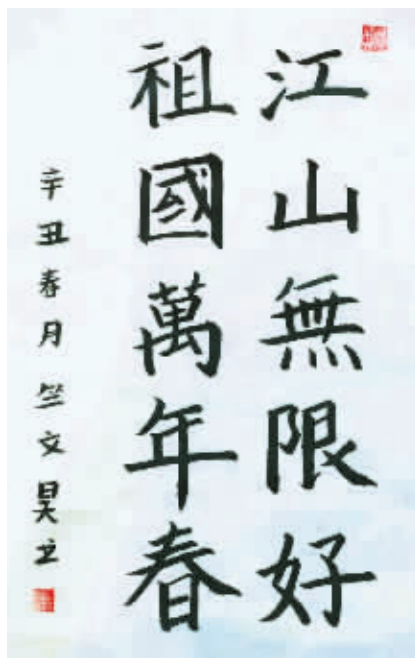 江山無限好
祖國萬年春
辛丑春月竺文昊书